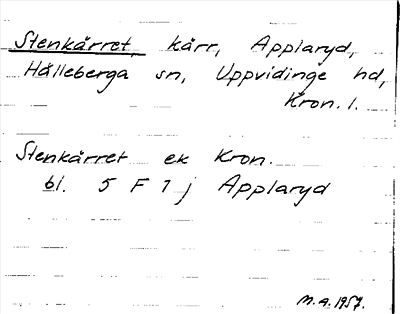 Stenkärret, kärr, Applaryd,
Hälleberga sn, Uppvidinge hd,
Kron. l.
Stenkärret ek Kron.
bl. 5 F 1 j Applaryd
M.A. 1957.